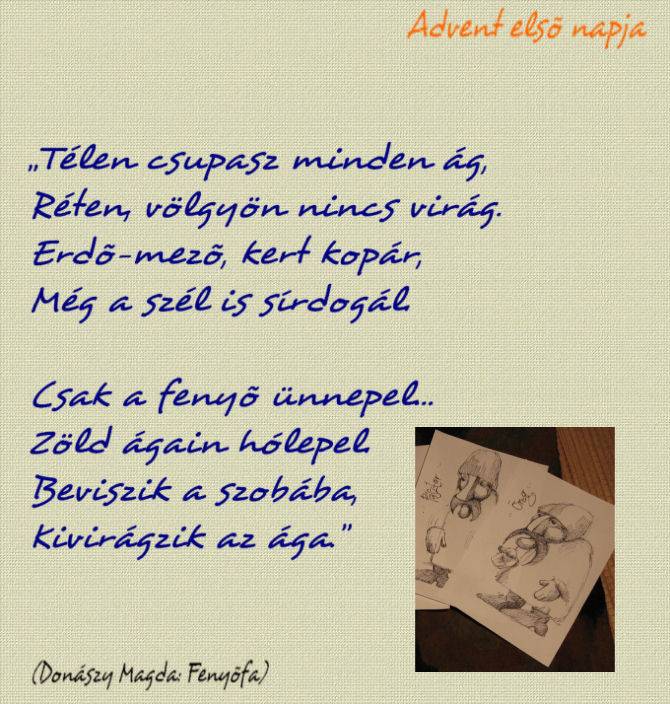 Advent elsõ napja
„Télen csupasz minden ág,
Réten, völgyön nincs virág.
Erdõ-mezõ, kert kopár,
Még a szél is sírdogál.
Csak a fenyõ ünnepel...
Zöld ágain hólepel.
Beviszik a szobába,
Kivirágzik az ága."
(Donászy Magda: Fenyõfa)